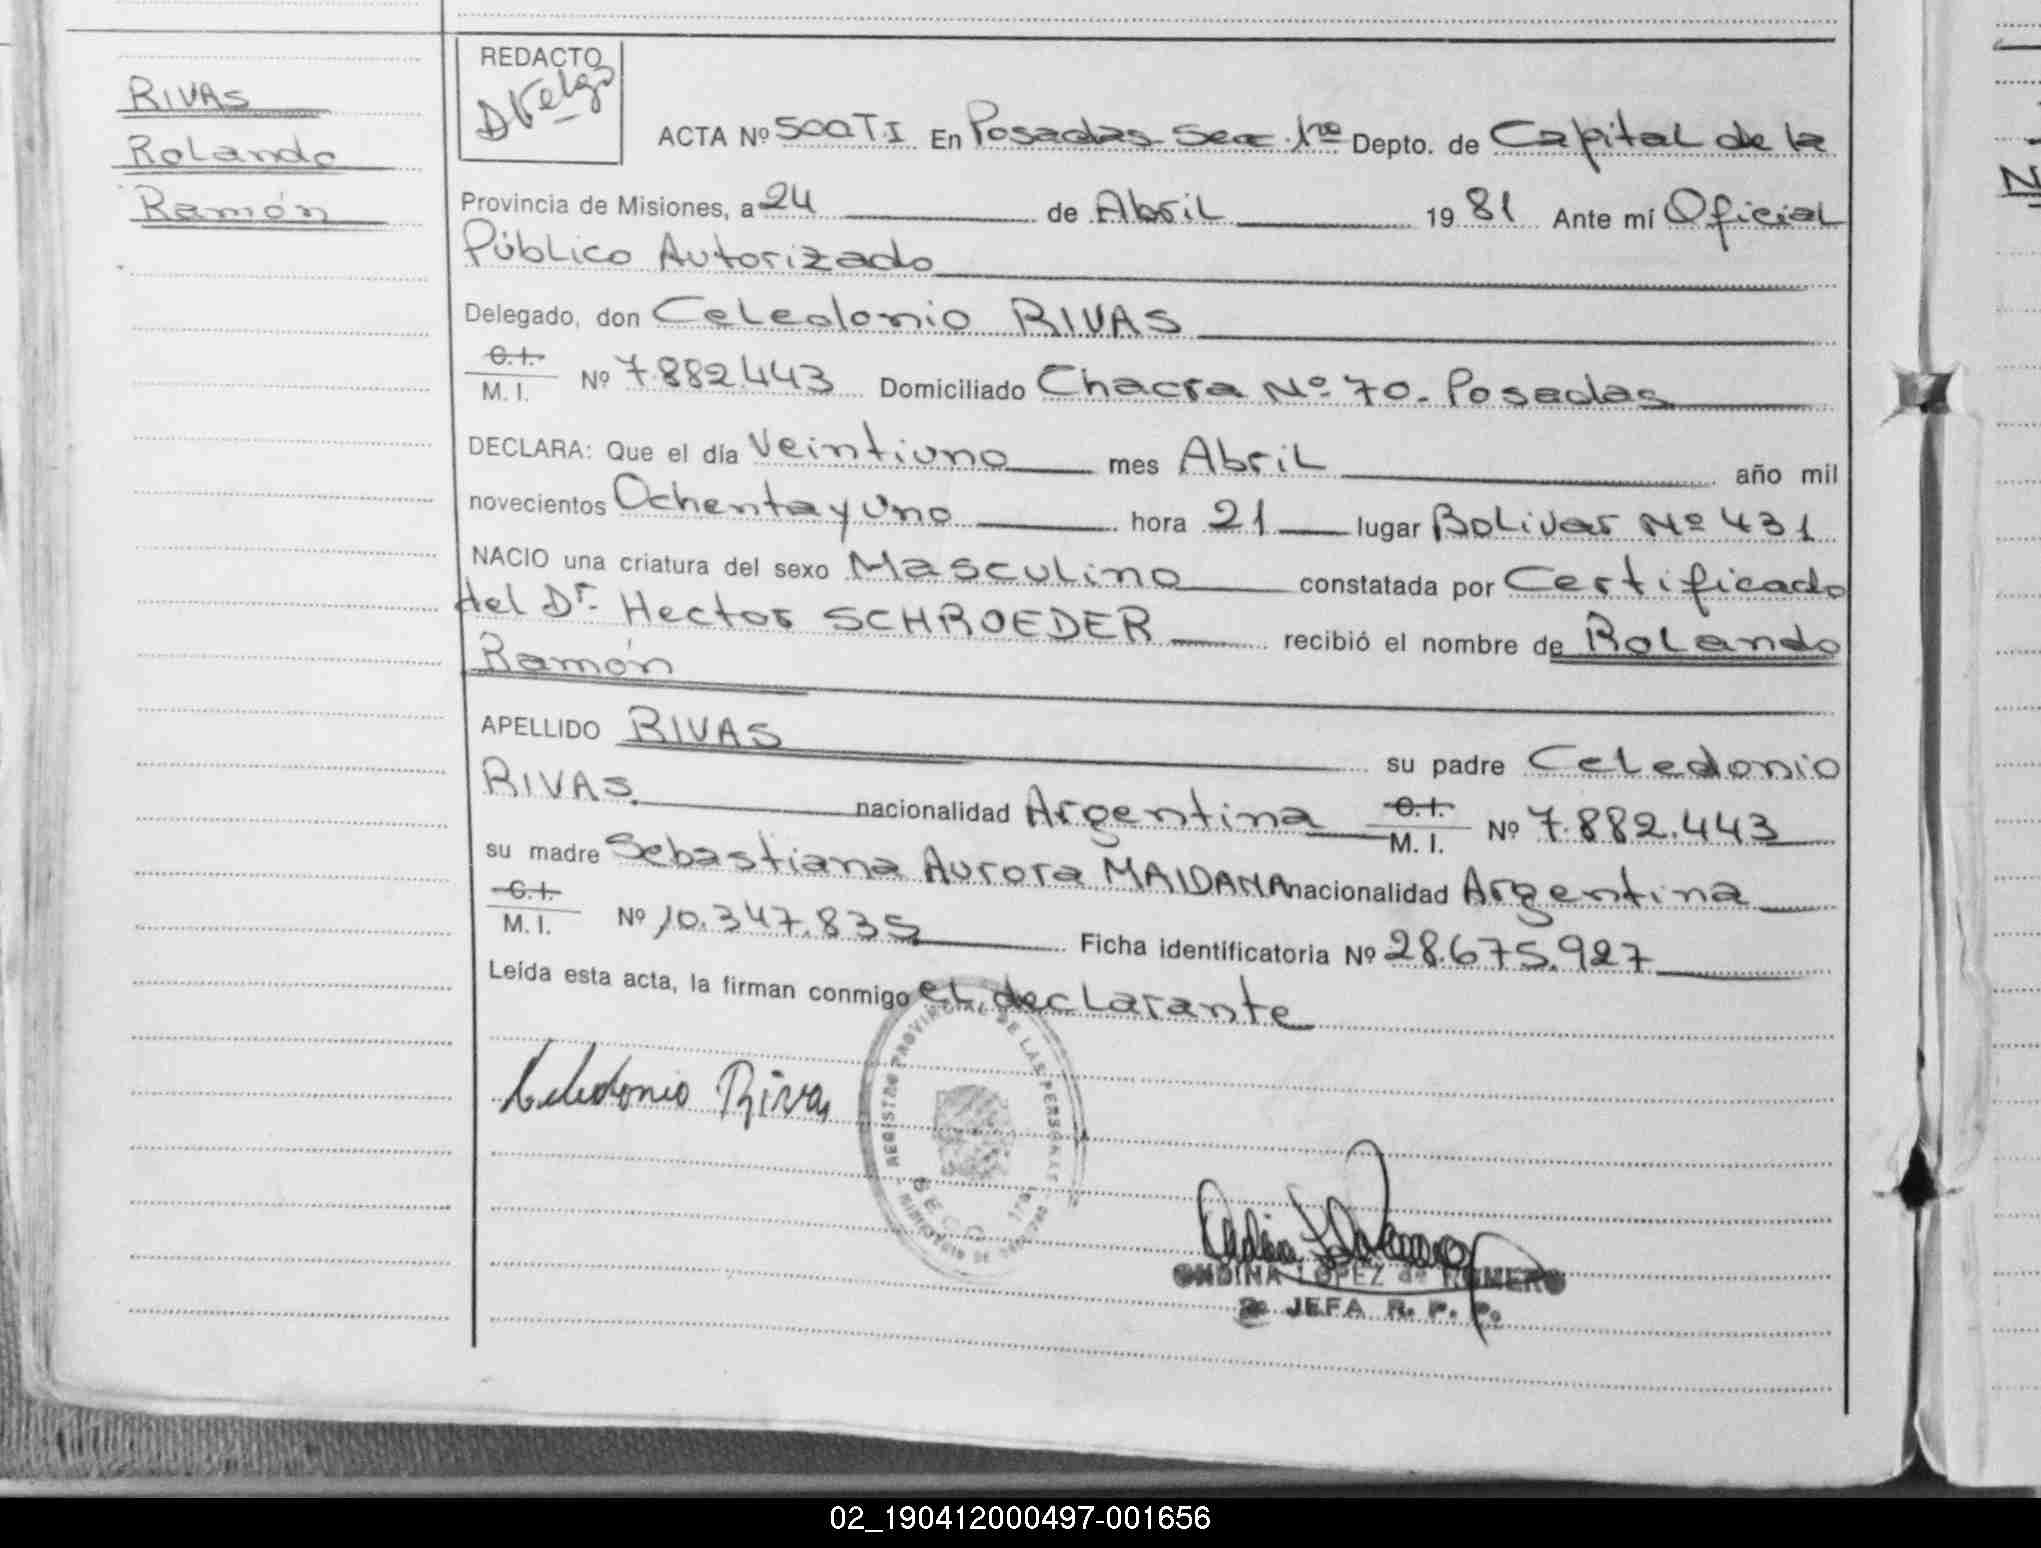 RIVAS
Rolando
Ramón
REDACTO
ACTA Nº 500 T.I En Posadas Sec. 1ra Depto. de Capital de la
Provincia de Misiones, a 24 de Abril 1981 Ante mí Oficial
Público Autorizado
Delegado, don Celedonio RIVAS
C.I.
M. I. Nº 7.882.443 Domiciliado Chacra Nº 70.- Posadas
DECLARA: Que el día Veintiuno mes Abril año mil
novecientos Ochenta y Uno hora 21 lugar Bolivar Nº 431
NACIO una criatura del sexo Masculino constatada por Certificado
del Dr. Hector SCHROEDER recibió el nombre de Rolando
Ramón
APELLIDO RIVAS su padre Celedonio
RIVAS nacionalidad Argentina C.I. M. I. Nº 7.882.443
su madre Sebastiana Aurora MAIDANA nacionalidad Argentina
C.I.
M. I. Nº 10.347.835 Ficha identificatoria Nº 28.675.927
Leída esta acta, la firman conmigo el declarante
Celedonio Rivas
REGISTRO PROVINCIAL DE LAS PERSONAS
ONDINA LOPEZ de ROMERO
JEFA R. P. P.
02_190412000497-001656